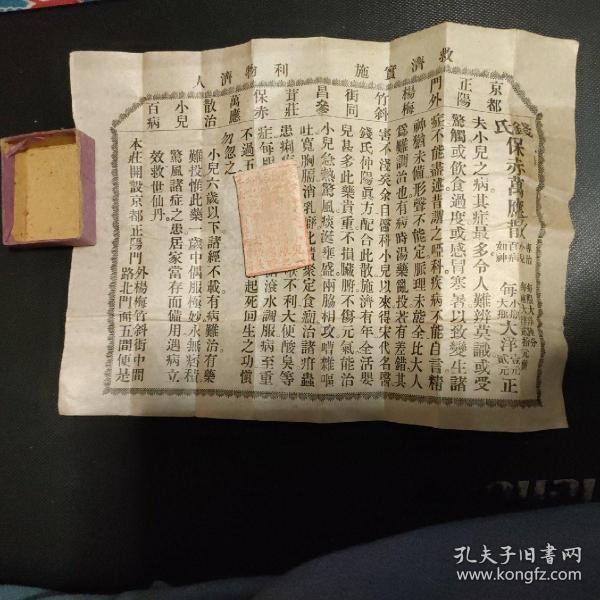 救濟實施 利物濟人
京都正陽門外楊梅竹斜街同昌參茸莊保赤萬應散治小兒百病
錢氏保赤萬應散 專治小兒百病如神 每小瓶大洋壹元 大瓶大洋貳元正
夫小兒之病其症最多令人難辯莫識或受
驚觸或飲食過度或感冒寒暑以致變生諸
症不能盡述昔謂之啞科疾病不能自言精
神猶未備形聲不能定脈理未能全比大人
為難調治也有病時湯藥亂投者有差錯其
害不淺矣余自醫科小兒以來得宋代名醫
錢氏仲陽眞方配合此散施濟有年全活嬰
兒甚多此藥貴重不損臟腑不傷元氣能治
小兒急熱驚風痰涎壅盛兩脇
吐寬胸膈消乳
積聚定食癇治諸疳蟲
患痢
不利大便酸臭等
症每
滾水調服病至重
不過五
起死回生之功慎
勿忽之
小兒六歲以下諸經不載有病難治有藥
難投惟此藥一歲中偶服極妙永無
驚風諸症之患居家當存而備用遇病立
效救世仙丹
本莊開設京都正陽門外楊梅竹斜街中間
路北門面五間便是
孔夫子旧书网
www.kongfz.com